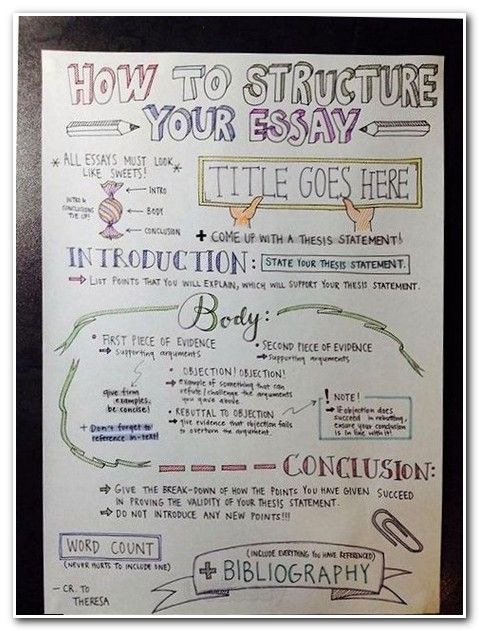 HOW TO STRUCTURE
YOUR ESSAY
* ALL ESSAYS MUST LOOK *
LIKE SWEETS!
INTRO
INTRO &
CONCLUSIONS
TIE UP!
BODY
CONCLUSION
TITLE GOES HERE
+ COME UP WITH A THESIS STATEMENT!
INTRODUCTION: STATE YOUR THESIS STATEMENT.
➡ LIST POINTS THAT YOU WILL EXPLAIN, WHICH WILL SUPPORT YOUR THESIS STATEMENT.
Body:
• FIRST PIECE OF EVIDENCE
➡ supporting arguments
• SECOND PIECE OF EVIDENCE
➡ supporting arguments
• OBJECTION! OBJECTION!
➡ example of something that can
refute/challenge the arguments
you gave above
give firm
examples,
be concise!
+ Don't forget to
reference in-text!
• REBUTTAL TO OBJECTION
➡ give evidence that objection fails
to overturn the argument.
! NOTE!
➡ If objection does
succeed in rebutting,
ensure your conclusion
is in line with it!
CONCLUSION:
➡ GIVE THE BREAK-DOWN OF HOW THE POINTS YOU HAVE GIVEN SUCCEED
IN PROVING THE VALIDITY OF YOUR THESIS STATEMENT.
➡ DO NOT INTRODUCE ANY NEW POINTS!!!
WORD COUNT
(NEVER HURTS TO INCLUDE ONE)
(INCLUDE EVERYTHING YOU HAVE REFERENCED)
+ BIBLIOGRAPHY
— CR. TO
THERESA